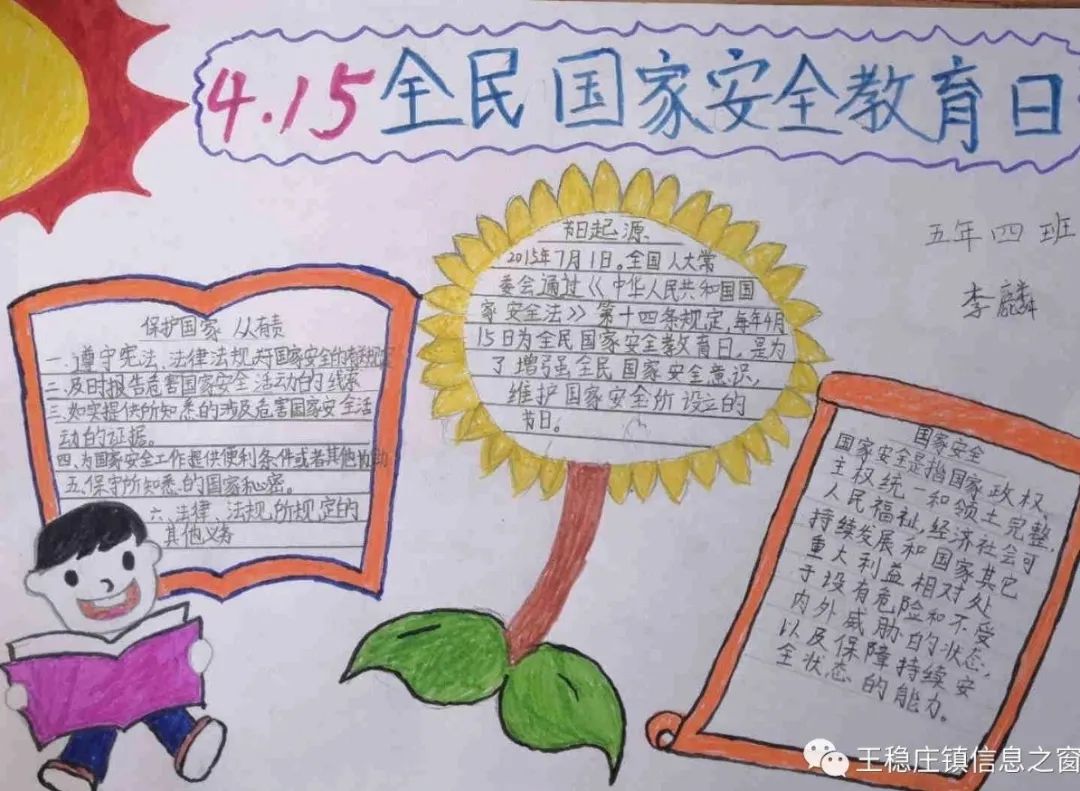 4.15全民国家安全教育日
五年四班
李麟
节日起源
2015年7月1日。全国人大常
委会通过《中华人民共和国国
家安全法》第十四条规定,每年4月
15日为全民国家安全教育日,是为
了增强全民国家安全意识,
维护国家安全所设立的
节日。
保护国家 从有责
一.遵守宪法、法律法规对国家安全的有关规定
二.及时报告危害国家安全活动的线索
三.如实提供所知悉的涉及危害国家安全活
动的证据。
四.为国家安全工作提供便利条件或者其他协助
五.保守所知悉的国家秘密。
六.法律、法规所规定的
其他义务
国家安全
国家安全是指国家政权、
主权统一和领土完整,
人民福祉,经济社会可
持续发展和国家其它
重大利益相对处
于没有危险和不受
内外威胁的状态,
以及保障持续安
全状态的能力。
王稳庄镇信息之窗